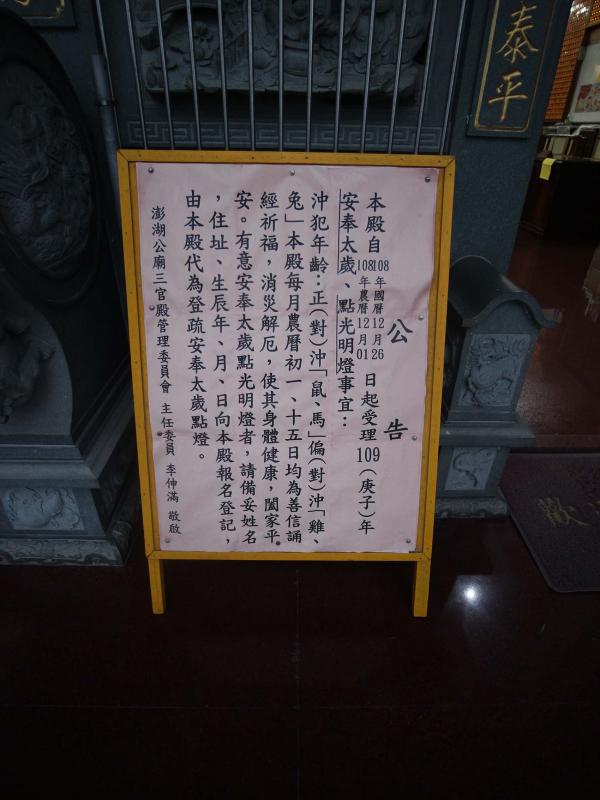 泰平
公告
本殿自108年國曆12月26
108年農曆12月01
日起受理109(庚子)年
安奉太歲、點光明燈事宜：
沖犯年齡：正(對)沖「鼠、馬」偏(對)沖「雞、
兔」本殿每月農曆初一、十五日均為善信誦
經祈福，消災解厄，使其身體健康，闔家平
安。有意安奉太歲點光明燈者，請備妥姓名
，住址、生辰年、月、日向本殿報名登記，
由本殿代為登疏安奉太歲點燈。
澎湖公廟三官殿管理委員會 主任委員 李伸滿 敬啟
歡